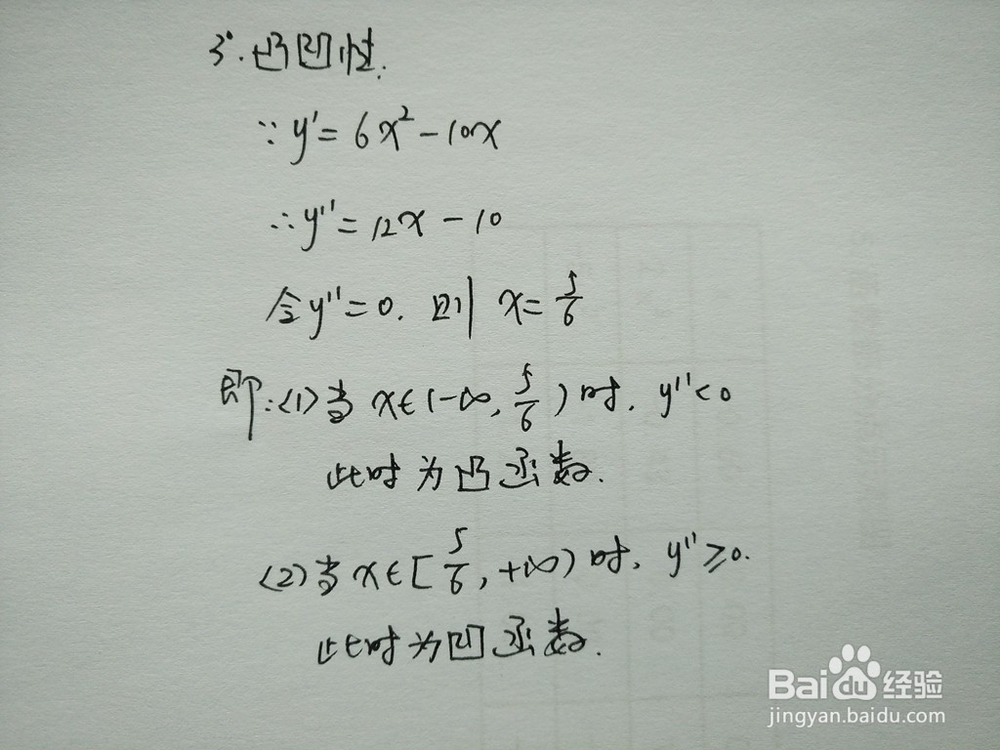 3°.凸凹性.
∵y'=6x²-10x
∴y''=12x-10
令y''=0.则x=5/6
即:<1>当x∈(-∞,5/6)时,y''<0
此时为凸函数.
<2>当x∈[5/6,+∞)时,y''≥0.
此时为凹函数.
Baidu经验
jingyan.baidu.com